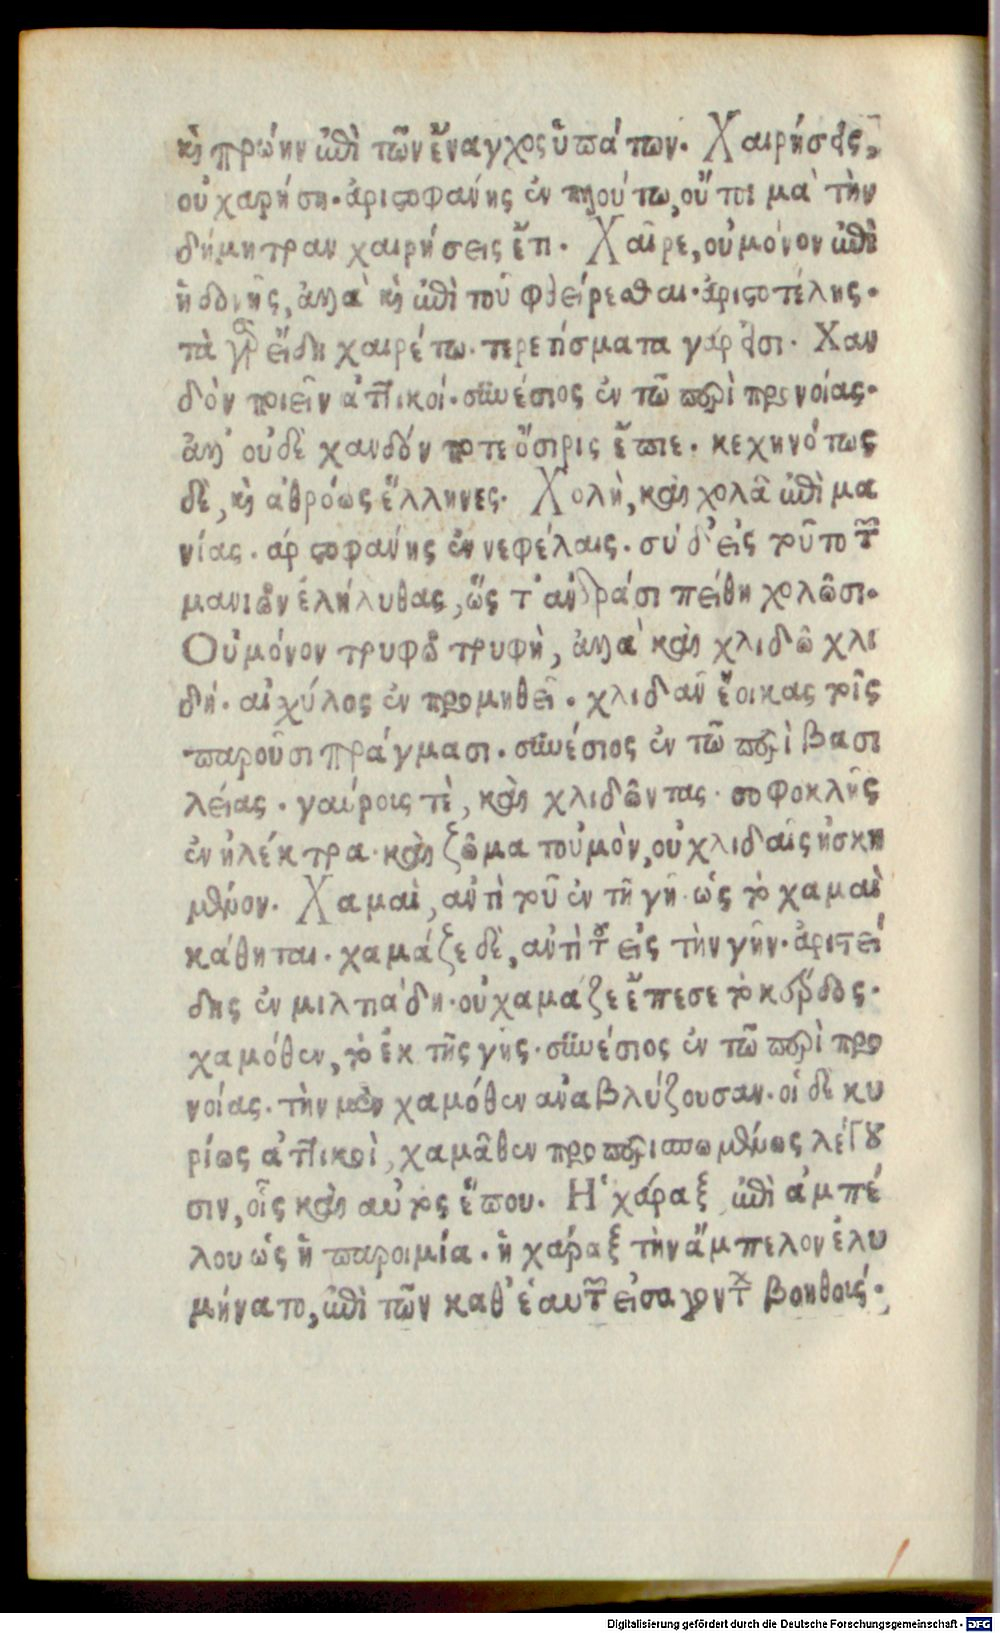 καὶ πρώην ἐπὶ τῶν ἔναγχος ὑπάτων. Χαιρήσεις,
οὐ χαρήση. ἀριστοφάνης ἐν πλούτω, οὔτοι μὰ τὴν
δήμητραν χαιρήσεις ἔτι. Χαῖρε, οὐ μόνον ἐπὶ
ἡδονῆς, ἀλλὰ καὶ ἐπὶ τοῦ φθείρεσθαι. ἀριστοτέλης.
τὰ γὰρ εἴδη χαιρέτω. τερετίσματα γάρ εἰσι. Χαν
δὸν πιεῖν ἀττικοί. συνέσιος ἐν τῶ περὶ προνοίας.
ἀλλ' οὐδὲ χανδόν ποτε ὄσιρις ἔπιε. κεχηνότως
δὲ, καὶ ἀθρόως ἕλληνες. Χολὴ, καὶ χολᾶ ἐπὶ μα
νίας. ἀριστοφάνης ἐν νεφέλαις. σὺ δ' εἰς τοῦτο τῶν
μανιῶν ἐλήλυθας, ὥς τ' ἀνδράσι πείθη χολῶσι.
Οὐ μόνον τρυφῶ τρυφὴ, ἀλλὰ καὶ χλιδῶ χλι
δή. αἰσχύλος ἐν προμηθεῖ. χλιδᾶν ἔοικας τοῖς
παροῦσι πράγμασι. συνέσιος ἐν τῶ περὶ βασι
λείας. γαύροις τὲ, καὶ χλιδῶντας. σοφοκλῆς
ἐν ἠλέκτρα. καὶ ζῶμα τοὐμὸν, οὐ χλιδαῖς ἠσκη
μένον. Χαμαὶ, ἀντὶ τοῦ ἐν τῆ γῆ. ὡς τὸ χαμαὶ
κάθηται. χαμάζε δὲ, ἀντὶ τοῦ εἰς τὴν γῆν. ἀριστεί
δης ἐν μιλτιάδη. οὐ χαμάζε ἔπεσε τὸ κῦδος.
χαμόθεν, τὸ ἐκ τῆς γῆς. συνέσιος ἐν τῶ περὶ προ
νοίας. τὴν μὲν χαμόθεν ἀναβλύζουσαν. οἱ δὲ κυ
ρίως ἀττικοὶ, χαμᾶθεν προπερισπωμένως λέγου
σιν, οἷς καὶ αὐτὸς ἕπου. Ἡ χάραξ ἐπὶ ἀμπέ
λου ὡς ἡ παροιμία. ἡ χάραξ τὴν ἄμπελον ἐλυ
μήνατο, ἐπὶ τῶν καθ' ἑαυτῶν εἰσαγόντων βοηθούς.
Digitalisierung gefördert durch die Deutsche Forschungsgemeinschaft - DFG